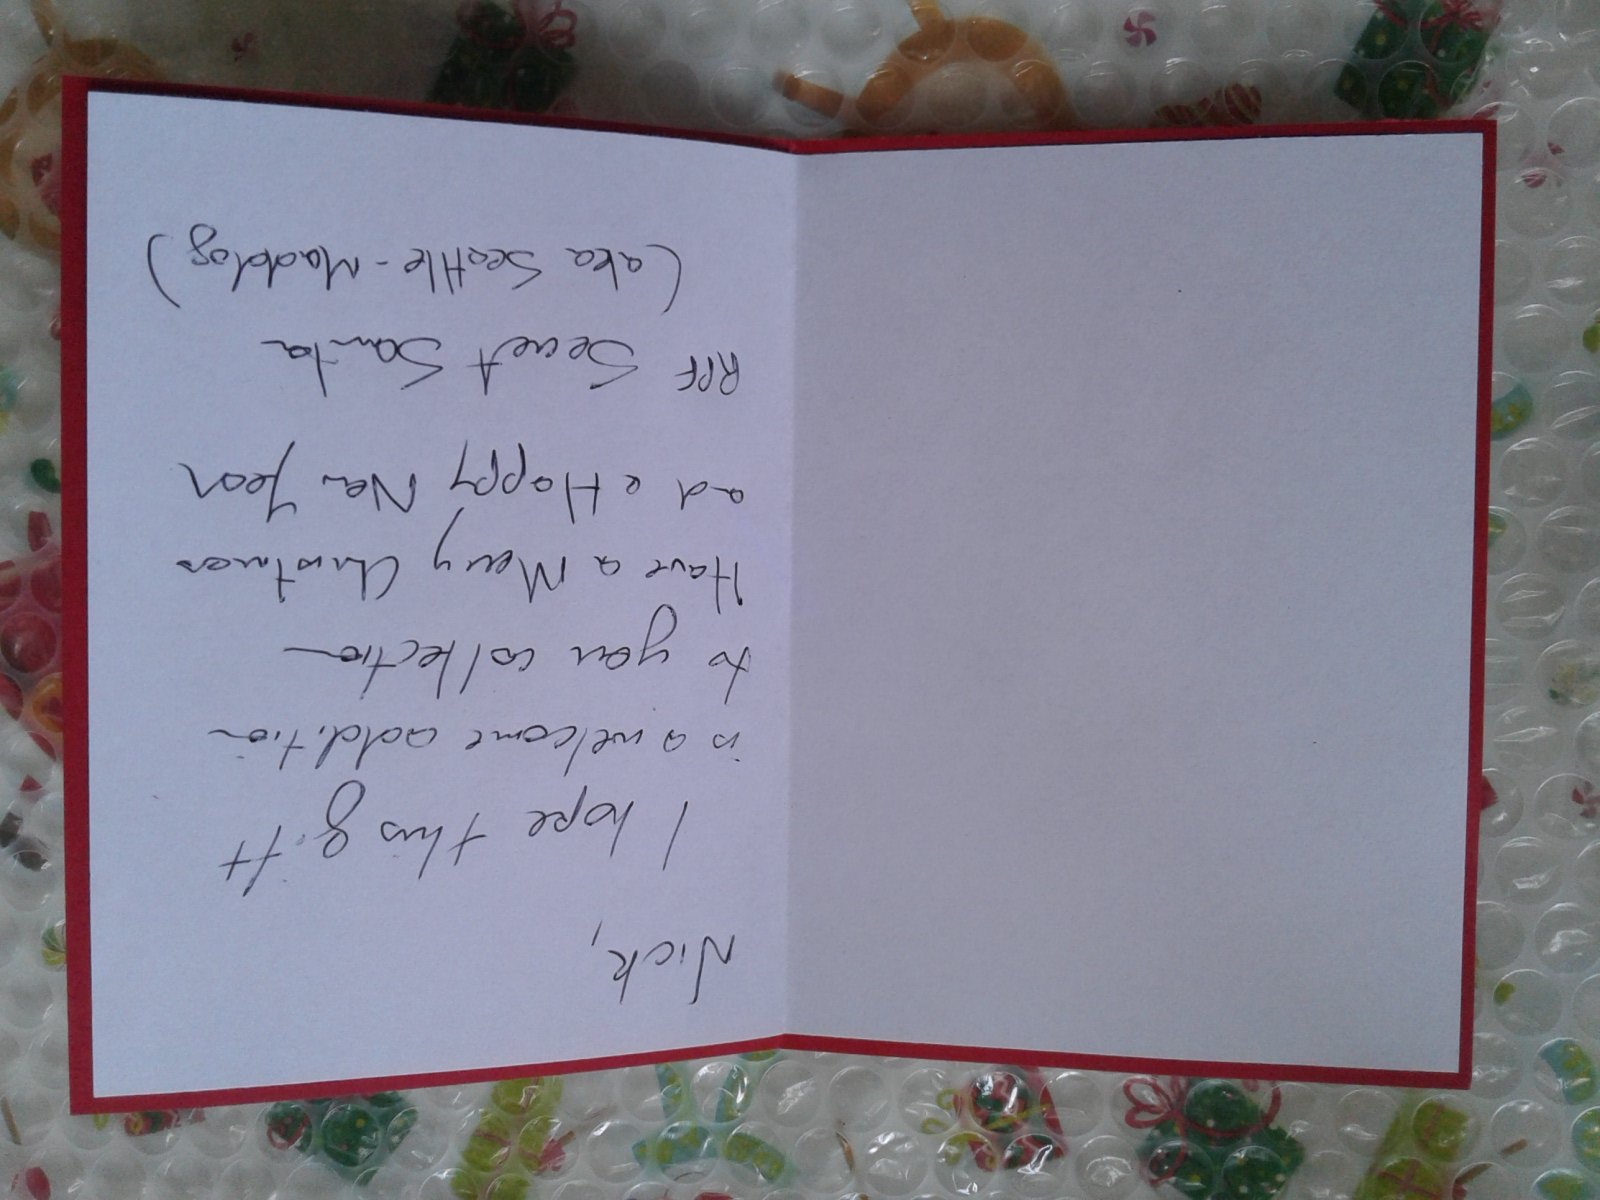 Nick,
I hope this gift
is a welcome addition
to your collection
Have a Merry Christmas
and a Happy New Year
RPF Secret Santa
(aka Seattle-Maddog)